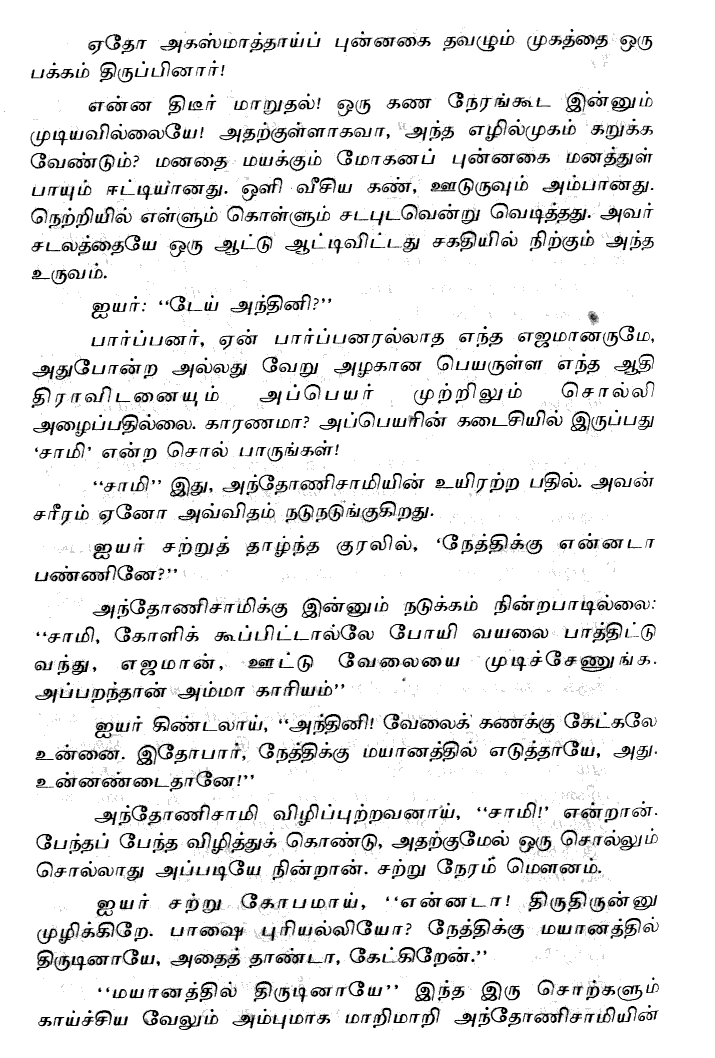 ஏதோ அகஸ்மாத்தாய்ப் புன்னகை தவழும் முகத்தை ஒரு
பக்கம் திருப்பினார்!
என்ன திடீர் மாறுதல்! ஒரு கண நேரங்கூட இன்னும்
முடியவில்லையே! அதற்குள்ளாகவா, அந்த எழில்முகம் கறுக்க
வேண்டும்? மனதை மயக்கும் மோகனப் புன்னகை மனத்துள்
பாயும் ஈட்டியானது. ஒளி வீசிய கண், ஊடுருவும் அம்பானது.
நெற்றியில் எள்ளும் கொள்ளும் சடபுடவென்று வெடித்தது. அவர்
சடலத்தையே ஒரு ஆட்டு ஆட்டிவிட்டது சகதியில் நிற்கும் அந்த
உருவம்.
ஐயர்: ‘‘டேய் அந்தினி?’’
பார்ப்பனர், ஏன் பார்ப்பனரல்லாத எந்த எஜமானருமே,
அதுபோன்ற அல்லது வேறு அழகான பெயருள்ள எந்த ஆதி
திராவிடனையும் அப்பெயர் முற்றிலும் சொல்லி
அழைப்பதில்லை. காரணமா? அப்பெயரின் கடைசியில் இருப்பது
‘சாமி’ என்ற சொல் பாருங்கள்!
‘‘சாமி’’ இது, அந்தோணிசாமியின் உயிரற்ற பதில். அவன்
சரீரம் ஏனோ அவ்விதம் நடுநடுங்குகிறது.
ஐயர் சற்றுத் தாழ்ந்த குரலில், ‘நேத்திக்கு என்னடா
பண்ணினே?’’
அந்தோணிசாமிக்கு இன்னும் நடுக்கம் நின்றபாடில்லை:
‘‘சாமி, கோளிக் கூப்பிட்டால்லே போயி வயலை பாத்திட்டு
வந்து, எஜமான், ஊட்டு வேலையை முடிச்சேணுங்க.
அப்பறந்தான் அம்மா காரியம்’’
ஐயர் கிண்டலாய், ‘‘அந்தினி! வேலைக் கணக்கு கேட்கலே
உன்னை. இதோபார், நேத்திக்கு மயானத்தில் எடுத்தாயே, அது.
உன்னண்டைதானே!’’
அந்தோணிசாமி விழிப்புற்றவனாய், ‘‘சாமி!’ என்றான்.
பேந்தப் பேந்த விழித்துக் கொண்டு, அதற்குமேல் ஒரு சொல்லும்
சொல்லாது அப்படியே நின்றான். சற்று நேரம் மௌனம்.
ஐயர் சற்று கோபமாய், ‘‘என்னடா! திருதிருன்னு
முழிக்கிறே. பாஷை புரியல்லியோ? நேத்திக்கு மயானத்தில்
திருடினாயே, அதைத் தாண்டா, கேட்கிறேன்.’’
‘‘மயானத்தில் திருடினாயே’’ இந்த இரு சொற்களும்
காய்ச்சிய வேலும் அம்புமாக மாறிமாறி அந்தோணிசாமியின்